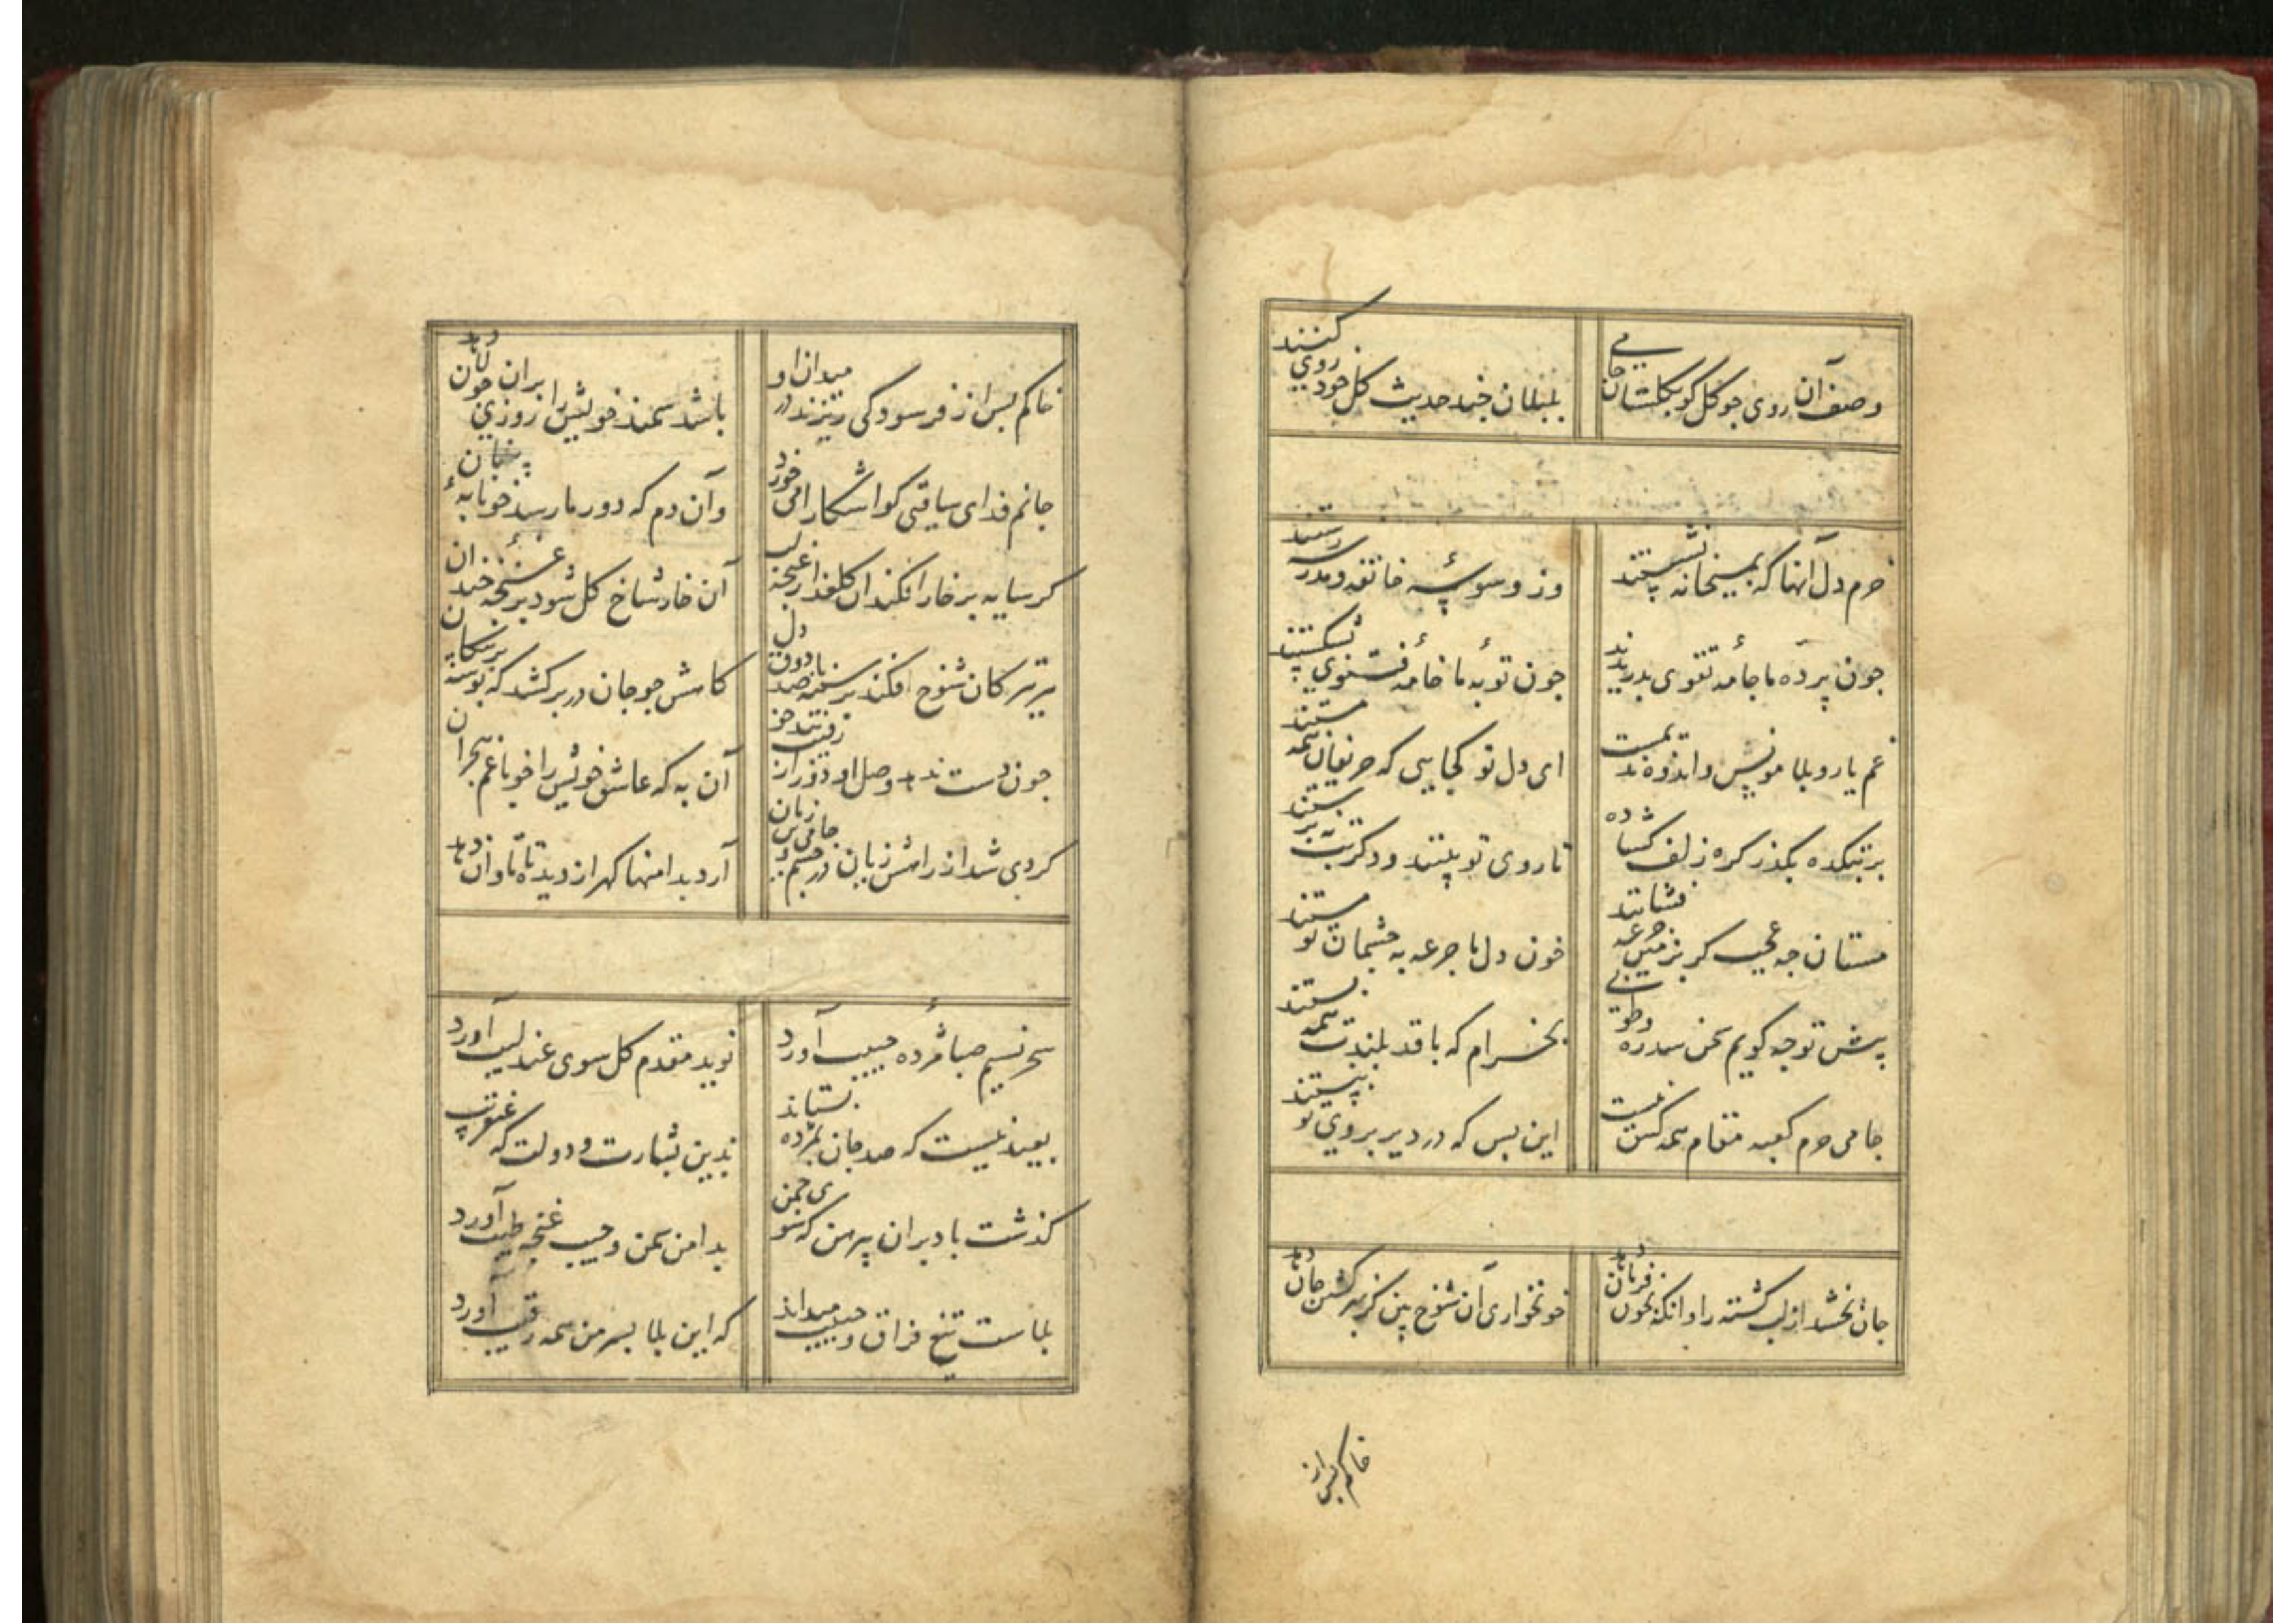 وصف آن روی جو کل کو بکلستان جامی
بلبلان جند حدیث کل خود روی کنند
خرم دل آنها که بمیخانه نشستند
وز وسوسهٔ خانقه و مدرسه رستند
جون پرده ما جامهٔ تقوی بدریدند
جون توبهٔ ما خامهٔ فتوی بشکستند
غم یار و بلا مونس و اندوه ندیمست
ای دل تو کجایی که حریفان همه مستند
بر بتکده بکذر کره زلف کشاده
تا روی تو بینند و دکر بت نپرستند
مستان جه عجب کر بزمین جرعه فشانند
خون دل ما جرعه به جشمان تو مستند
پیش تو جه کویم سخن سدره و طوبی
بخرام که با قد بلندت همه پستند
جامی حرم کعبه مقام همه کس نیست
این بس که در دیر بروی تو نبستند
جان بخشد از لب کشته را وانکه بخون فرمان دهد
خونخواری آن شوخ بین کز بهر کشتن جان دهد
خاکم پس از
خاکم پس از فرسودکی ریزند در میدان او
باشد سمند خویش را روزی بران جولان دهد
جانم فدای ساقیی کو آشکارا می خورد
وآن دم که دور ما رسد خونابهٔ پنهان
کر سایه بر خار افکند آن کلعذار غنچه لب
آن خار شاخ کل شود بر غنچهٔ خندان
هر تیر کان شوخ افکند بر سینه صد با ذوق دل
کامش جو جان در بر کشد که بوسه بر پیکان
جون دست ندهد وصل او
آن به که عاشق خویش را خو با غم هجران
کردی شد از راهش زیان در جشم جامی
آرد بدامنها کهر از دیده تا تاوان دهد
سحر نسیم صبا مژده حبیب آورد
نوید مقدم کل سوی عندلیب آورد
بعید نیست که صد جان بمژده بستاند
بدین بشارت و دولت که
کذشت باد بران پیرهن که سوی جمن
بدامن سمن و جیب غنچه طیب آورد
بلاست تیغ فراق و حبیب میداند
که این بلا بسر من همه رقیب آورد